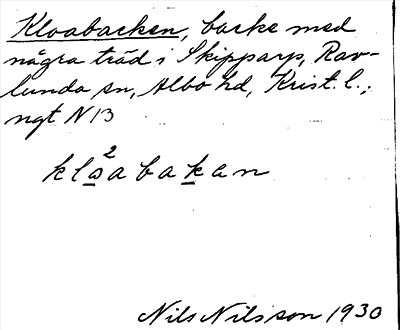 Kloabacken, backe med
några träd i Skipparp, Rav-
lunda sn, Albo hd, Krist. l.;
ngt N 13
Nils Nilsson 1930